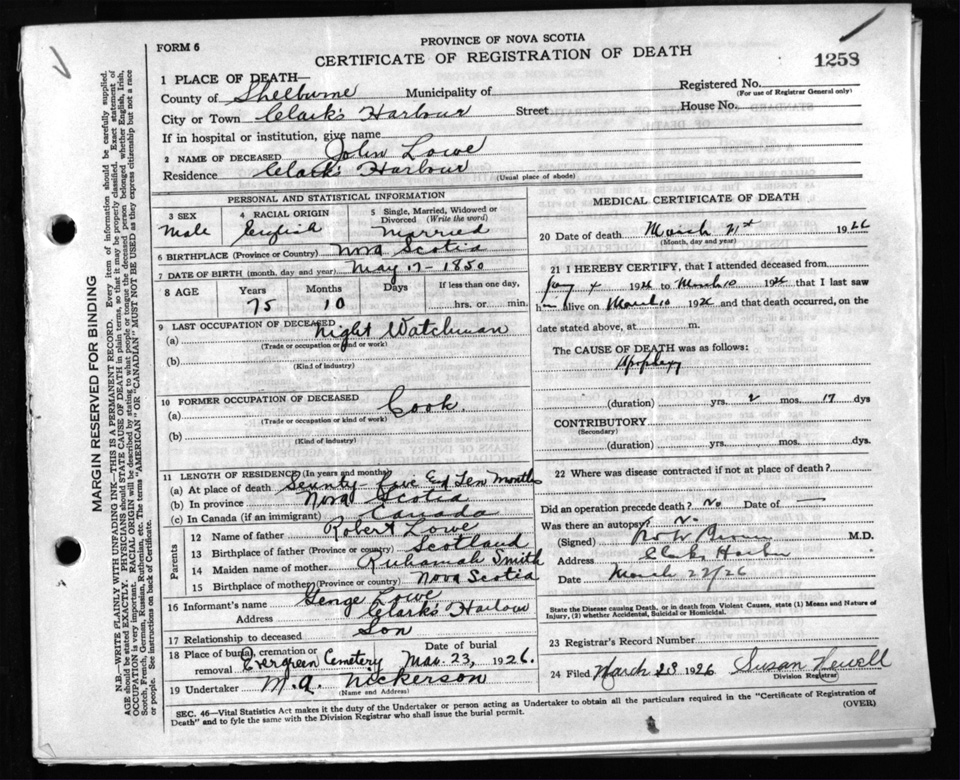 PROVINCE OF NOVA SCOTIA
FORM 6
CERTIFICATE OF REGISTRATION OF DEATH
1258
1 PLACE OF DEATH—
County of Shelburne Municipality of
Registered No.
(For use of Registrar General only)
City or Town Clark's Harbour Street House No.
If in hospital or institution, give name
2 NAME OF DECEASED John Lowe
Residence Clark's Harbour
(Usual place of abode)
PERSONAL AND STATISTICAL INFORMATION
3 SEX
Male
4 RACIAL ORIGIN
English
5 Single, Married, Widowed or Divorced (Write the word)
Married
6 BIRTHPLACE (Province or Country) Nova Scotia
7 DATE OF BIRTH (month, day and year) May 17 - 1850
8 AGE Years Months Days If less than one day,
75 10 hrs. or min.
9 LAST OCCUPATION OF DECEASED
(a) Night Watchman
(Trade or occupation or kind or work)
(b)
(Kind of industry)
10 FORMER OCCUPATION OF DECEASED
(a) Cook.
(Trade or occupation or kind of work)
(b)
(Kind of industry)
11 LENGTH OF RESIDENCE (In years and months)
(a) At place of death Seventy five Ten Months
(b) In province Nova Scotia
(c) In Canada (if an immigrant) Canada
Parents
12 Name of father Robert Lowe
13 Birthplace of father (Province or country) Scotland
14 Maiden name of mother Ruhamah Smith
15 Birthplace of mother (Province or country) Nova Scotia
16 Informant's name George Lowe
Address Clark's Harbour
17 Relationship to deceased Son
18 Place of burial, cremation or removal Evergreen Cemetery
Date of burial Mar. 23, 1926.
19 Undertaker M. A. Nickerson
(Name and Address)
MEDICAL CERTIFICATE OF DEATH
20 Date of death March 21st 1926
(Month, day and year)
21 I HEREBY CERTIFY, that I attended deceased from
1926 to March 10 1926 that I last saw
him alive on March 10 1926 and that death occurred, on the
date stated above, at m.
The CAUSE OF DEATH was as follows:
Apoplexy
(duration) yrs. 2 mos. 17 dys
CONTRIBUTORY
(Secondary)
(duration) yrs. mos. dys.
22 Where was disease contracted if not at place of death?
Did an operation precede death? No Date of —
Was there an autopsy? No
(Signed) M.D.
Address Clarks Harbor
Date March 22/26
State the Disease causing Death, or in death from Violent Causes, state (1) Means and Nature of
Injury, (2) whether Accidental, Suicidal or Homicidal.
23 Registrar's Record Number
24 Filed March 23 1926 Susan Newell
Division Registrar
SEC. 46—Vital Statistics Act makes it the duty of the Undertaker or person acting as Undertaker to obtain all the particulars required in the "Certificate of Registration of
Death" and to fyle the same with the Division Registrar who shall issue the burial permit.
(OVER)
MARGIN RESERVED FOR BINDING
N.B.—WRITE PLAINLY WITH UNFADING INK—THIS IS A PERMANENT RECORD. Every item of information should be carefully supplied.
AGE should be stated EXACTLY. PHYSICIANS should STATE CAUSE OF DEATH in plain terms, so that it may be properly classified. Exact statement of
OCCUPATION is very important. RACIAL ORIGIN will be described by stating to what people or tongue the deceased person belonged whether English, Irish,
Scotch, French, German, Russian, Ruthenian, etc. The terms "AMERICAN" OR "CANADIAN" MUST NOT BE USED as they express citizenship but not a race
or people. See instructions on back of Certificate.